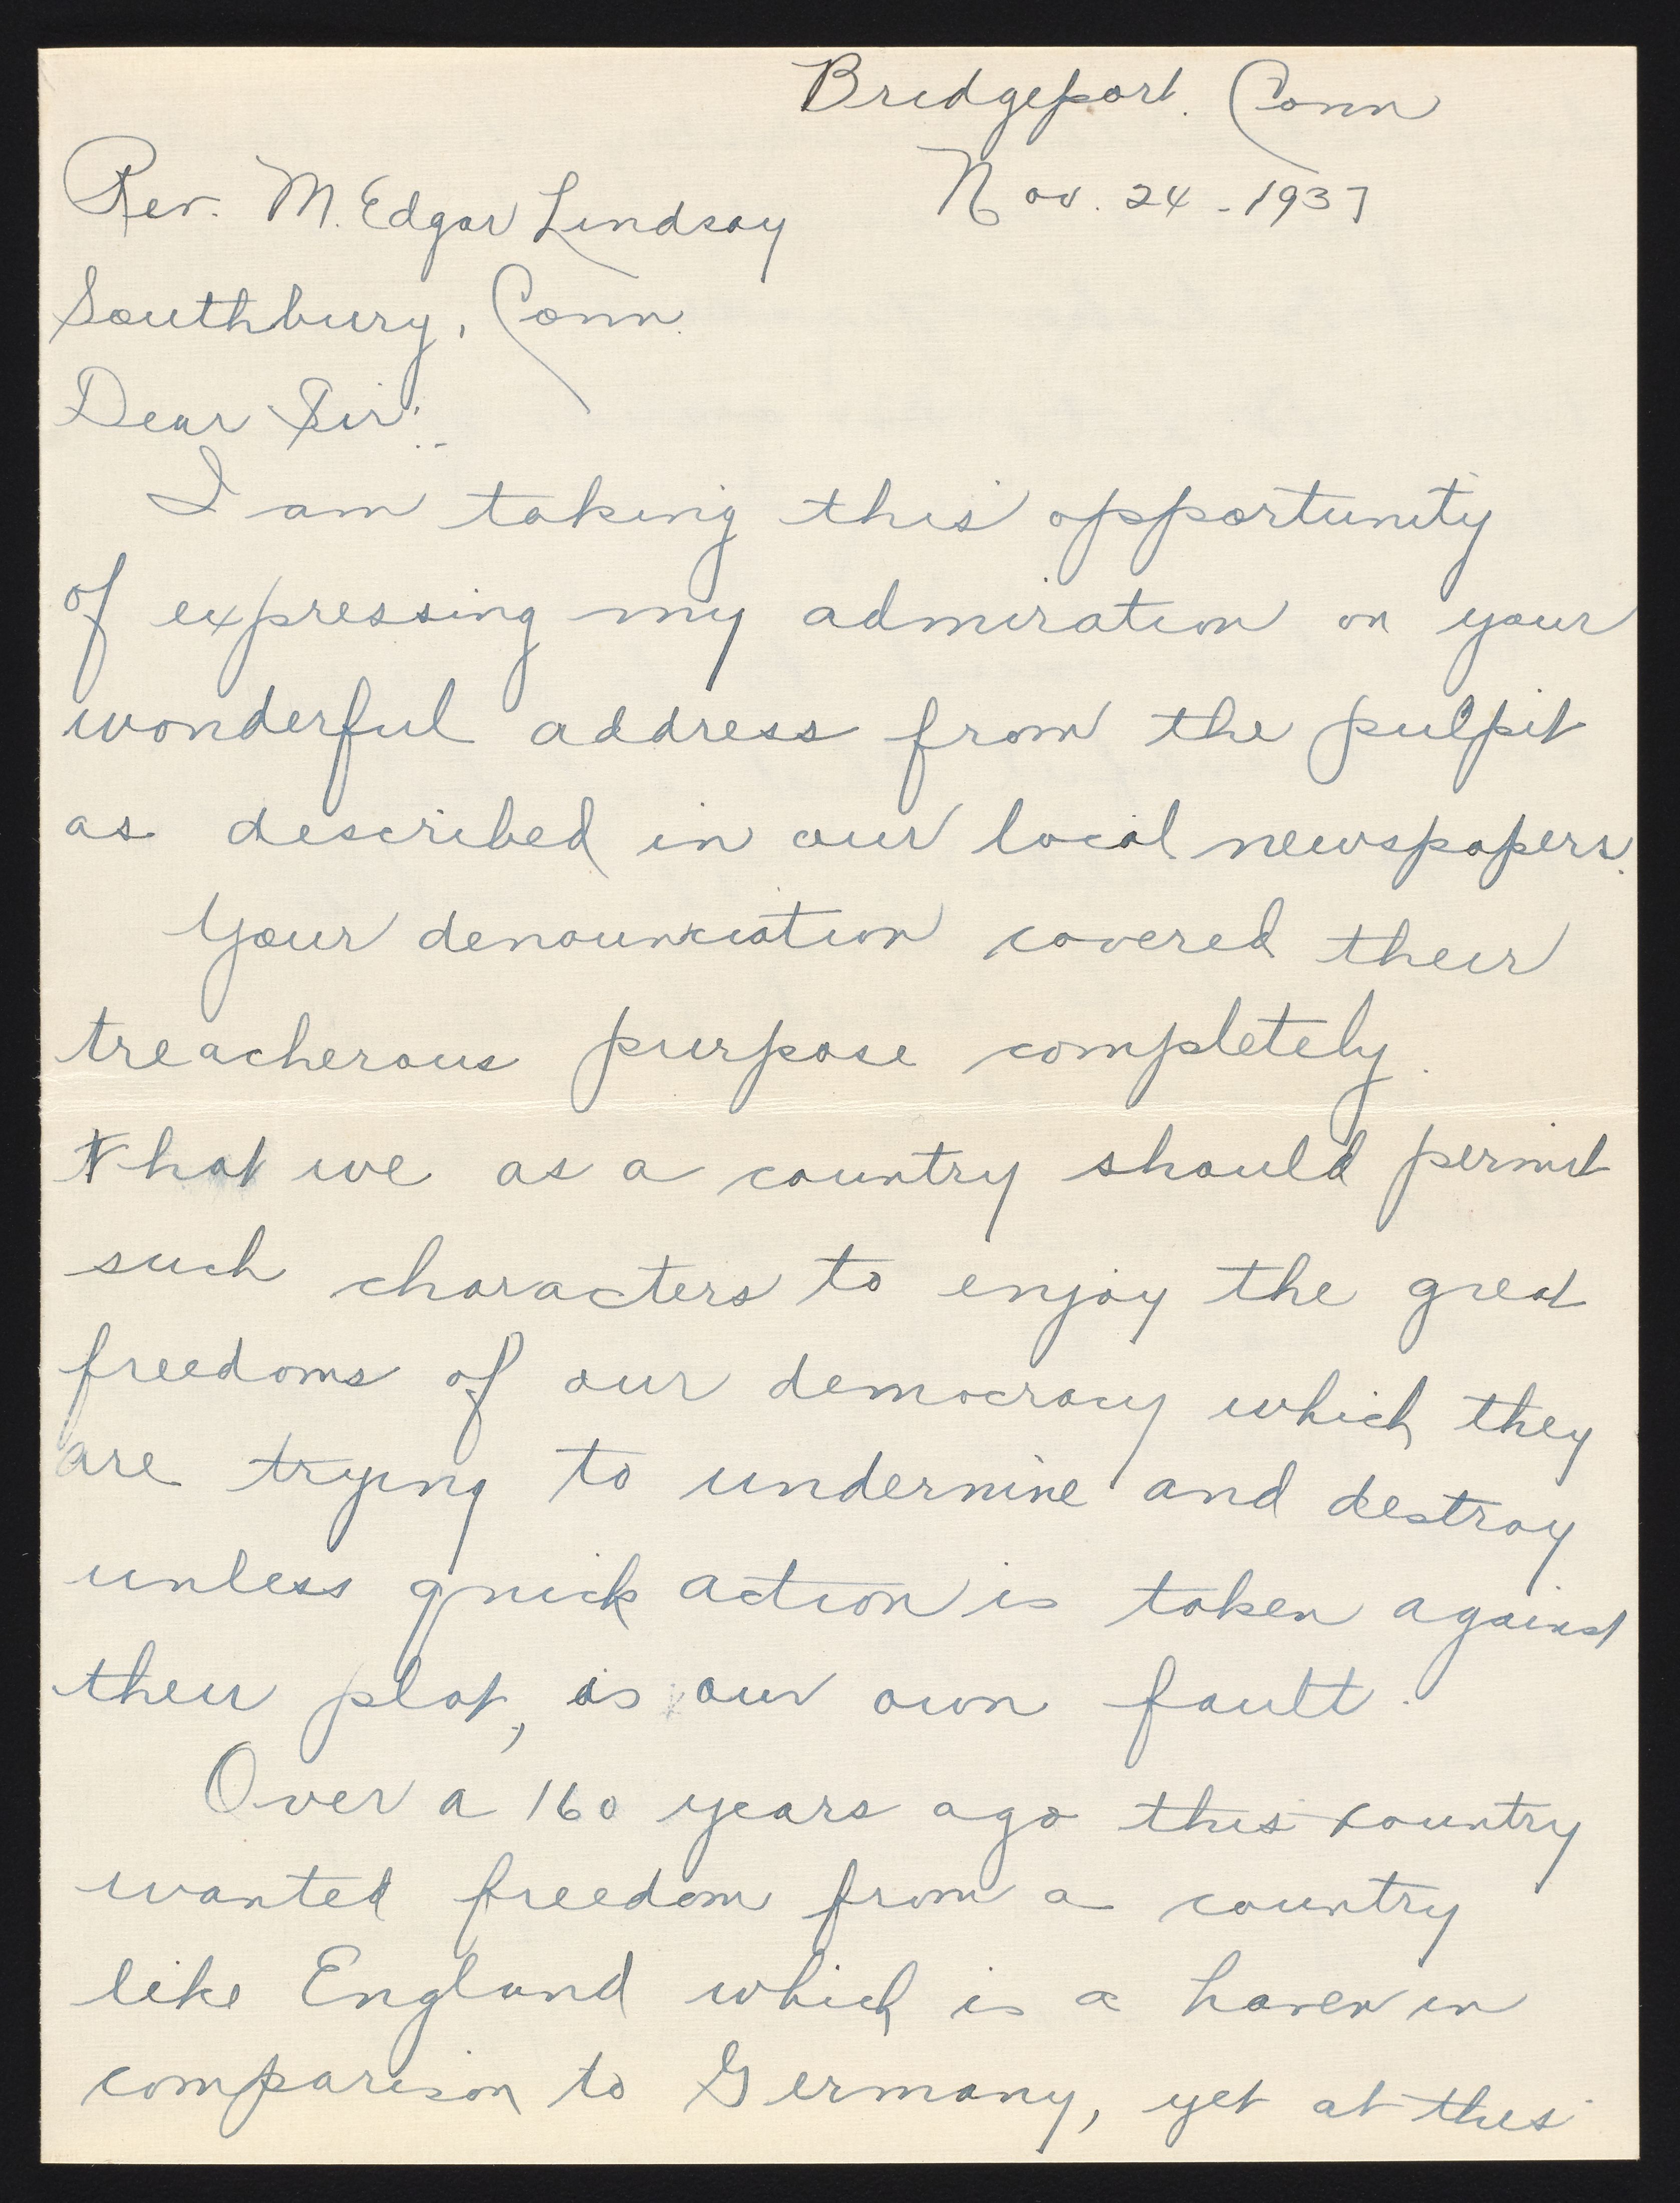 Bridgeport. Conn
Nov. 24 - 1937
Rev. M. Edgar Lindsay
Southbury, Conn.
Dear Sir:-
I am taking this opportunity
of expressing my admiration on your
wonderful address from the pulpit
as described in our local newspapers.
Your denounciation covered their
treacherous purpose completely.
that we as a country should permit
such characters to enjoy the great
freedoms of our democracy which they
are trying to undermine and destroy
unless quick action is taken against
their plot, is our own fault.
Over a 160 years ago this country
wanted freedom from a country
like England which is a haven in
comparison to Germany, yet at this